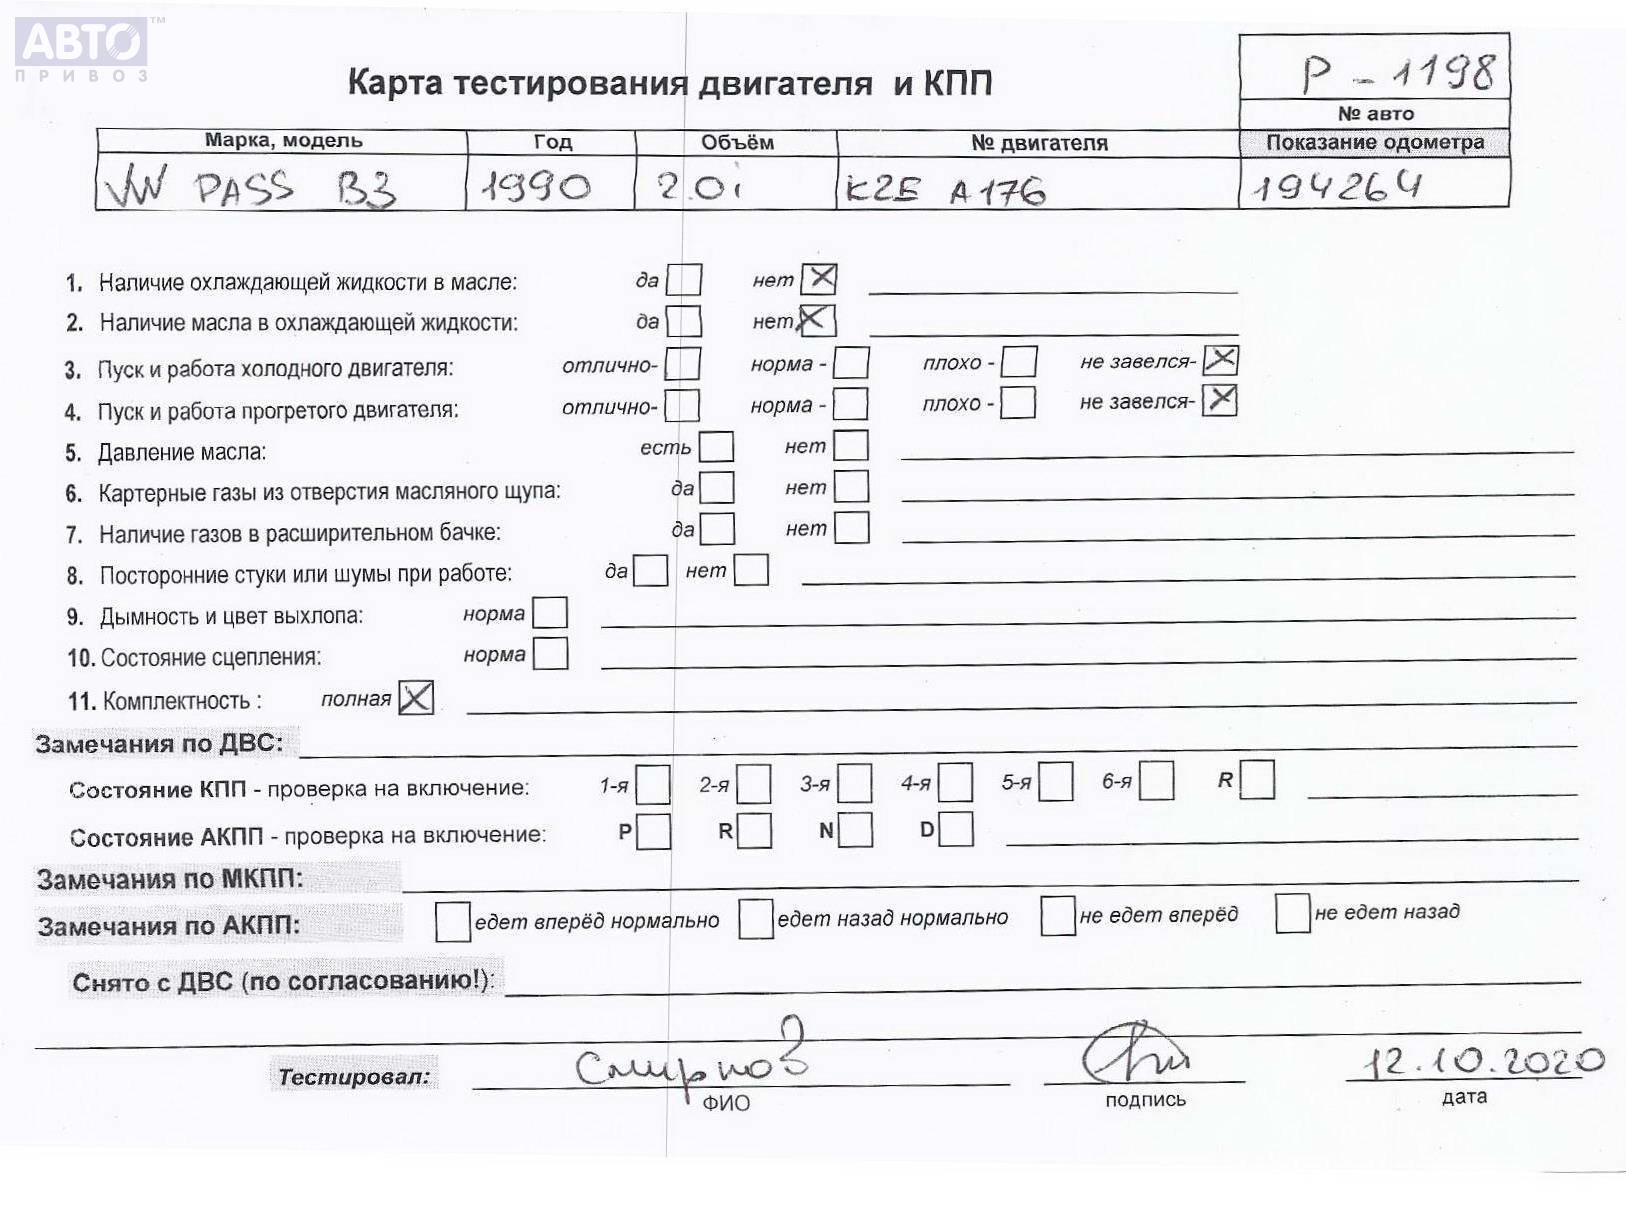 АВТО™
ПРИВОЗ
P - 1198
Карта тестирования двигателя и КПП
№ авто
Марка, модель Год Объём № двигателя Показание одометра
VW PASS B3 1990 2.0i K2E A176 194264
1. Наличие охлаждающей жидкости в масле: да нет
2. Наличие масла в охлаждающей жидкости: да нет
3. Пуск и работа холодного двигателя: отлично- норма - плохо - не завелся-
4. Пуск и работа прогретого двигателя: отлично- норма - плохо - не завелся-
5. Давление масла: есть нет
6. Картерные газы из отверстия масляного щупа: да нет
7. Наличие газов в расширительном бачке: да нет
8. Посторонние стуки или шумы при работе: да нет
9. Дымность и цвет выхлопа: норма
10. Состояние сцепления: норма
11. Комплектность : полная
Замечания по ДВС:
Состояние КПП - проверка на включение: 1-я 2-я 3-я 4-я 5-я 6-я R
Состояние АКПП - проверка на включение: P R N D
Замечания по МКПП:
Замечания по АКПП: едет вперёд нормально едет назад нормально не едет вперёд не едет назад
Снято с ДВС (по согласованию!):
Тестировал: Смирнов 12.10.2020
ФИО подпись дата